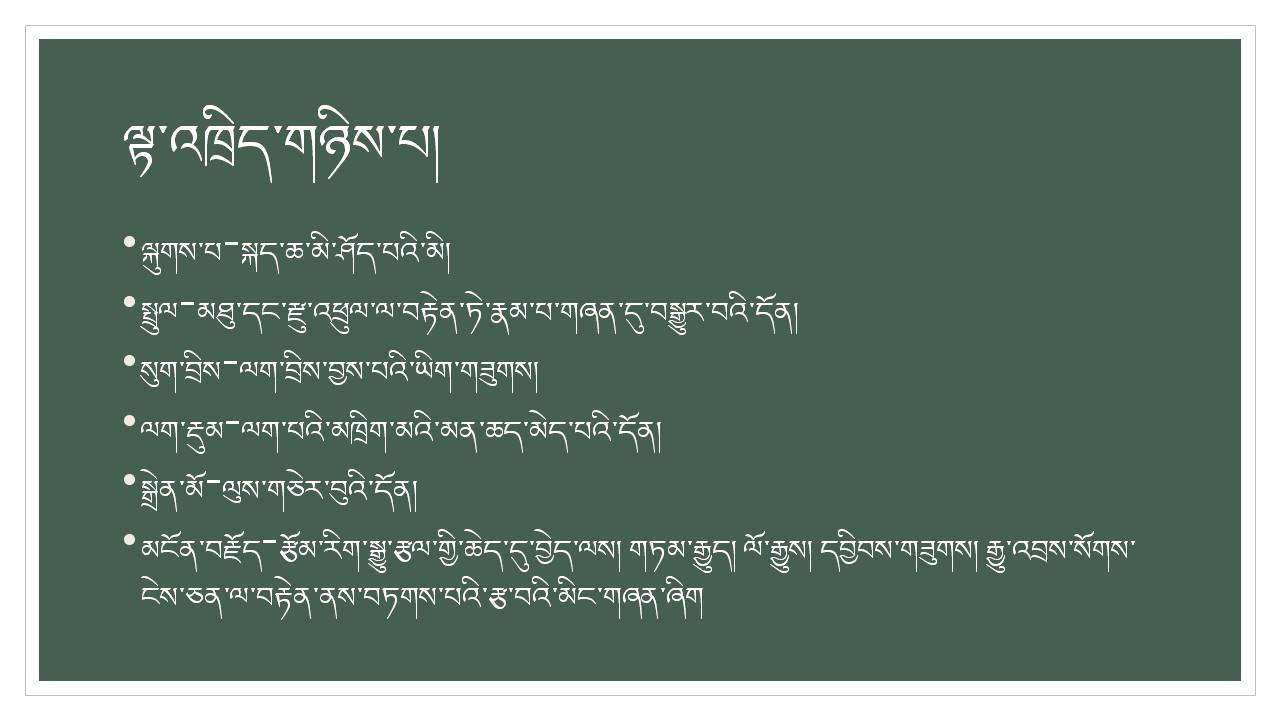 ལྟ་འཁྲིད་གཉིས་པ།
• ལྐུགས་པ–སྐད་ཆ་མི་ཤོད་པའི་མི།
• སྤྲུལ–མཐུ་དང་རྫུ་འཕྲུལ་ལ་བརྟེན་ཏེ་རྣམ་པ་གཞན་དུ་བསྒྱུར་བའི་དོན།
• སུག་བྲིས–ལག་བྲིས་བྱས་པའི་ཡིག་གཟུགས།
• ལག་རྡུམ–ལག་པའི་མཁྲིག་མའི་མན་ཆད་མེད་པའི་དོན།
• སྒྲེན་མོ–ལུས་གཅེར་བུའི་དོན།
• མངོན་བརྗོད–རྩོམ་རིག་སྒྱུ་རྩལ་གྱི་ཆེད་དུ་བྱེད་ལས། གཏམ་རྒྱུད། ལོ་རྒྱུས། དབྱིབས་གཟུགས། རྒྱུ་འབྲས་སོགས་
ངེས་ཅན་ལ་བརྟེན་ནས་བཏགས་པའི་རྩ་བའི་མིང་གཞན་ཞིག